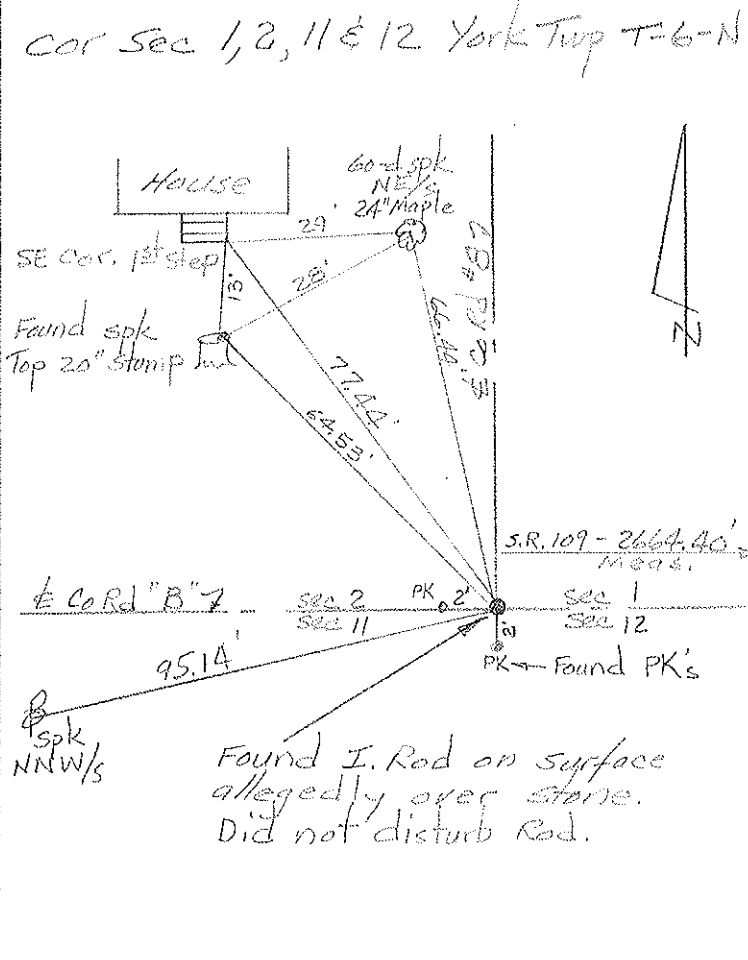 Cor Sec 1, 2, 11 & 12 York Twp T-6-N
House
60-d spk
NE/s
24" Maple
29'
SE Cor. 1st step
13'
28'
Found spk
Top 20" Stump
77.44'
64.53'
66.44'
℄ Co Rd # 7
N
S.R. 109 - 2664.40'
Meas.
℄ Co Rd "B" 7
sec 2
sec 11
PK
2'
sec 1
sec 12
2'
PK
Found PK's
95.14'
spk
NNW/s
Found I. Rod on surface
allegedly over stone.
Did not disturb Rod.